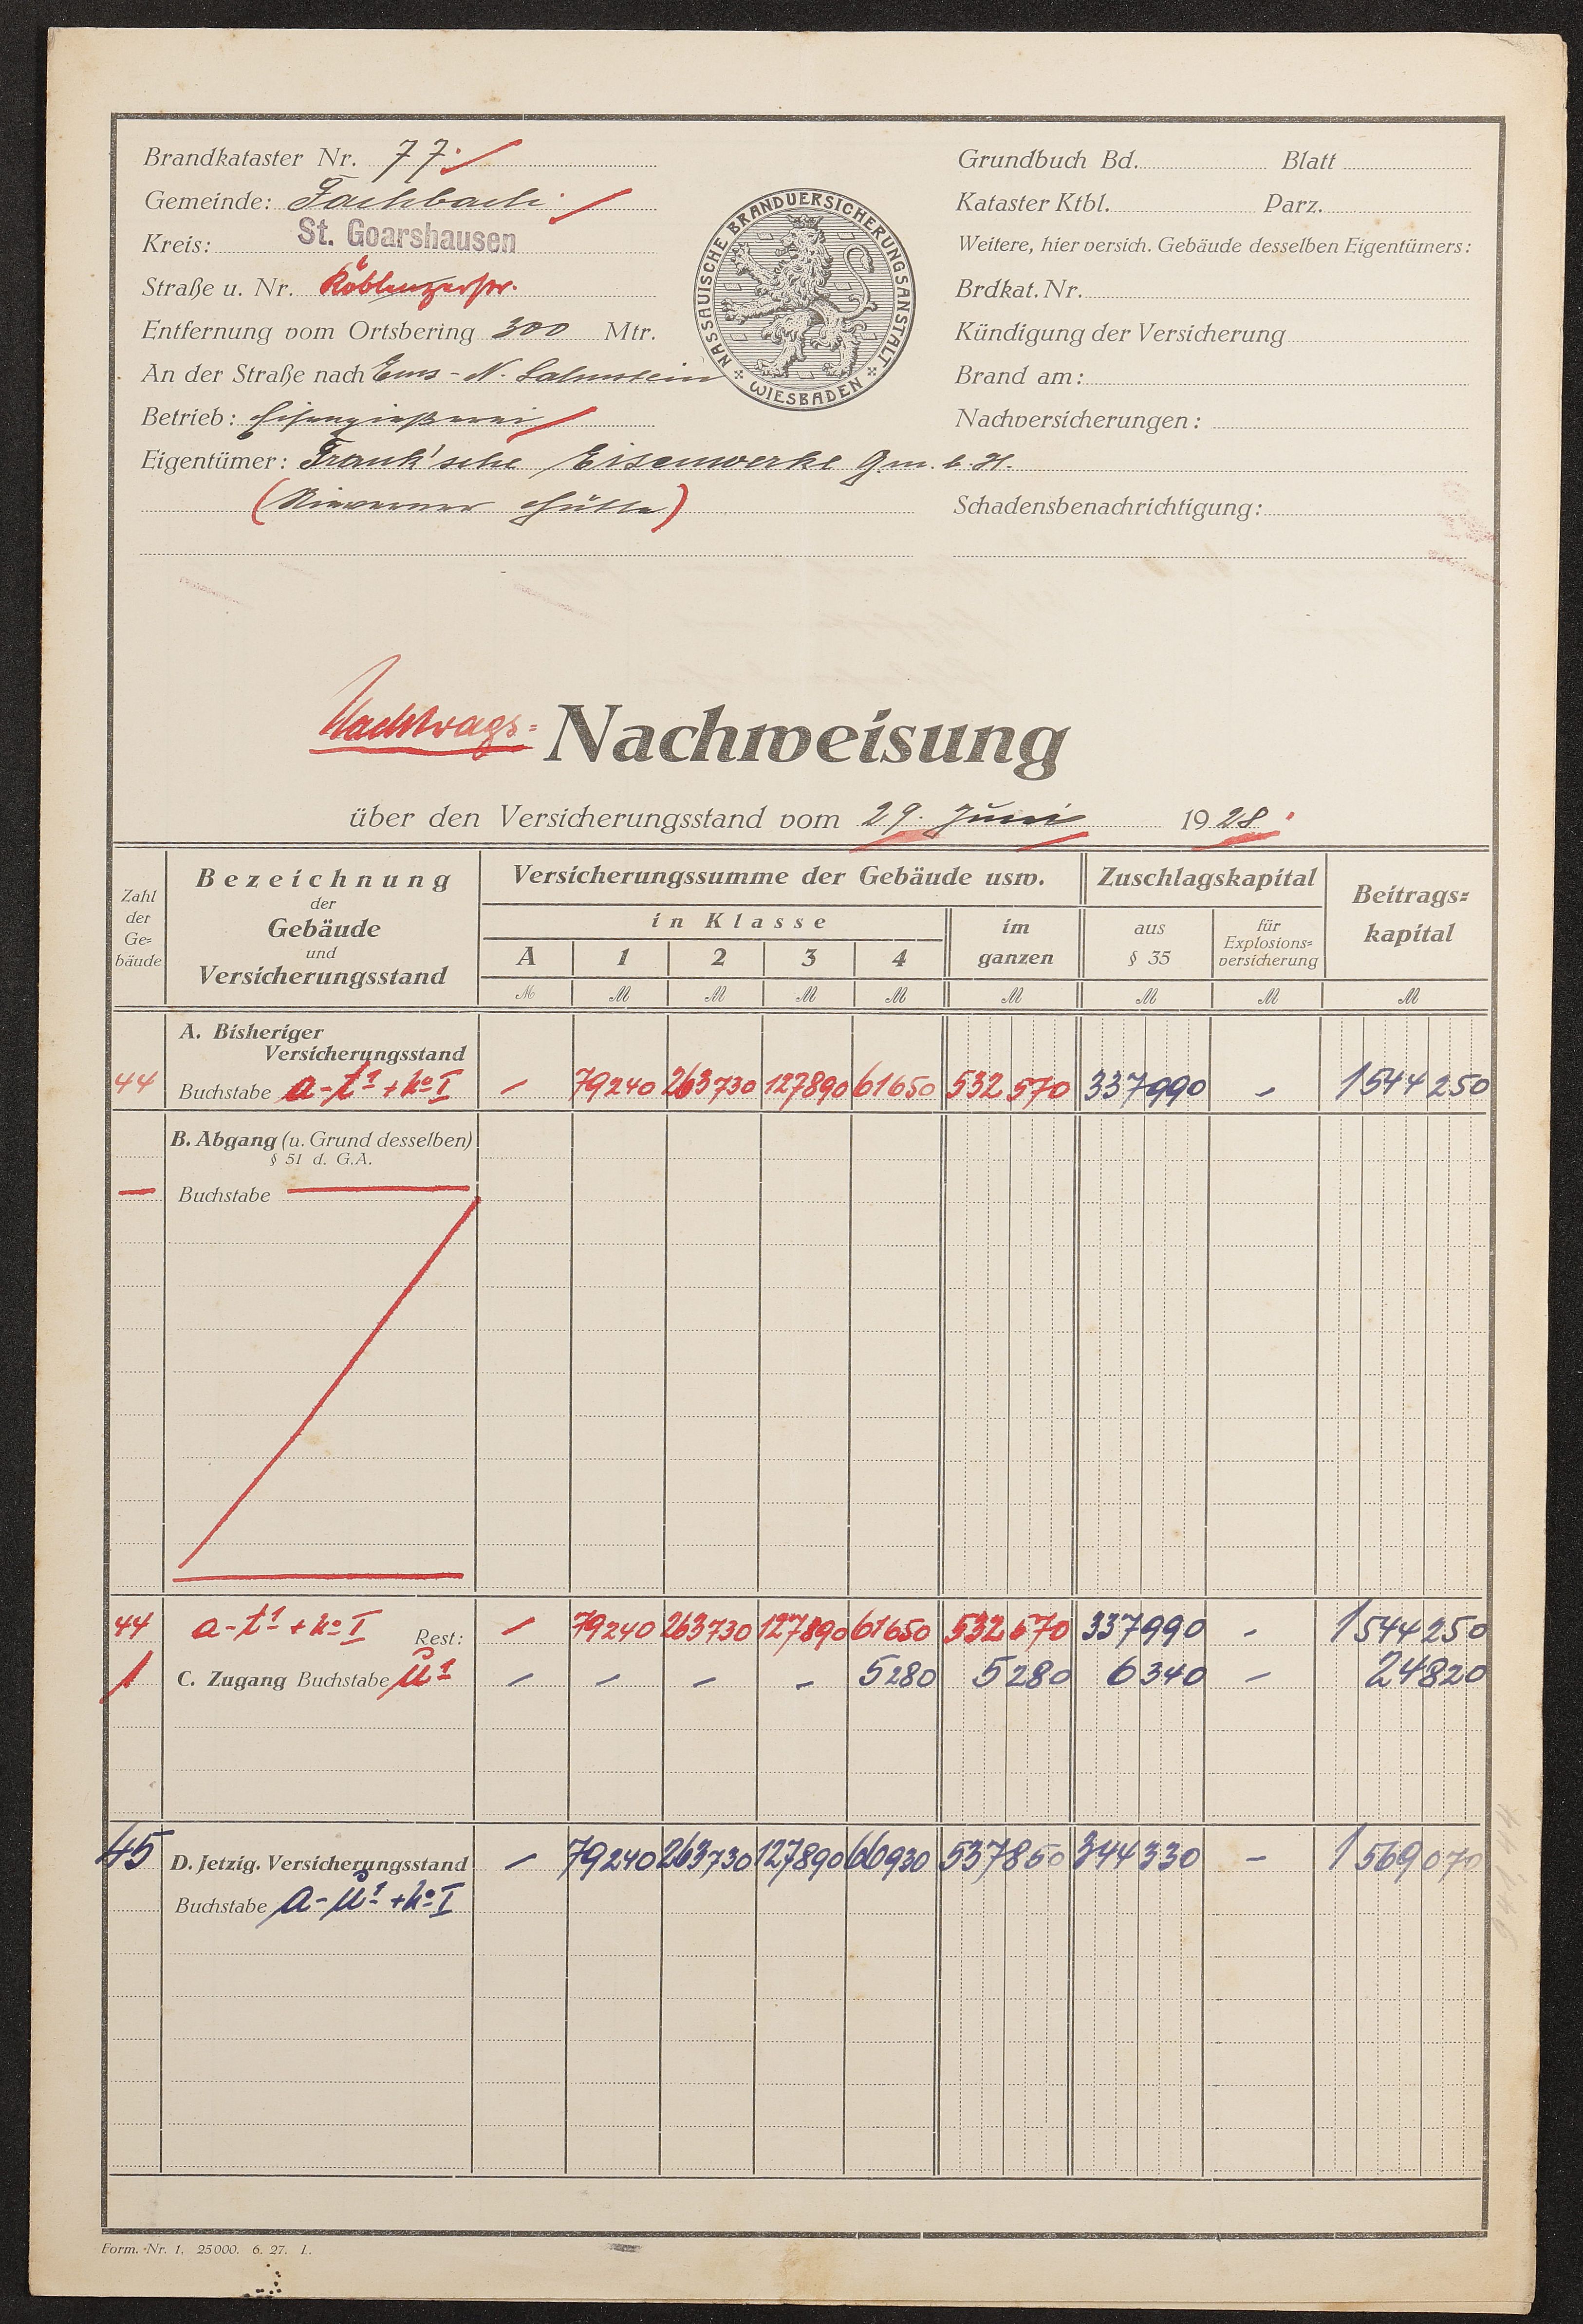 Brandkataster Nr. 77.
Gemeinde: Fachbach.
Kreis: St. Goarshausen
Straße u. Nr. Koblenzerstr.
Entfernung vom Ortsbering 300 Mtr.
An der Straße nach Ems - N. Lahnstein
Betrieb: Eisengießerei
Eigentümer: Frank'sche Eisenwerke G.m.b.H.
(Nieverner Hütte)
NASSAUISCHE BRANDVERSICHERUNGSANSTALT
WIESBADEN
Grundbuch Bd. Blatt
Kataster Ktbl. Parz.
Weitere, hier versich. Gebäude desselben Eigentümers:
Brdkat. Nr.
Kündigung der Versicherung
Brand am:
Nachversicherungen:
Schadensbenachrichtigung:
Nachtrags= Nachweisung
über den Versicherungsstand vom 29. Juni 1928.
Zahl der Ge=bäude
Bezeichnung
der
Gebäude
und
Versicherungsstand
Versicherungssumme der Gebäude usw.
in Klasse
A 1 2 3 4
im ganzen
Zuschlagskapital
aus § 35
für Explosions=versicherung
Beitrags=kapital
M M M M M M M M M
A. Bisheriger
Versicherungsstand
44 Buchstabe a-t¹ + No I – 79240 263730 127890 61650 532 570 337990 – 1544250
B. Abgang (u. Grund desselben)
§ 51 d. G.A.
— Buchstabe —
44 a-t¹ + No I Rest: – 79240 263730 127890 61650 532 570 337990 – 1544250
1 C. Zugang Buchstabe u¹ – – – – 5280 5280 6340 – 24820
45 D. Jetzig. Versicherungsstand – 79240 263730 127890 66930 537850 344330 – 1569070
Buchstabe a-u¹ + No I
Form. Nr. 1. 25000. 6. 27. 1.